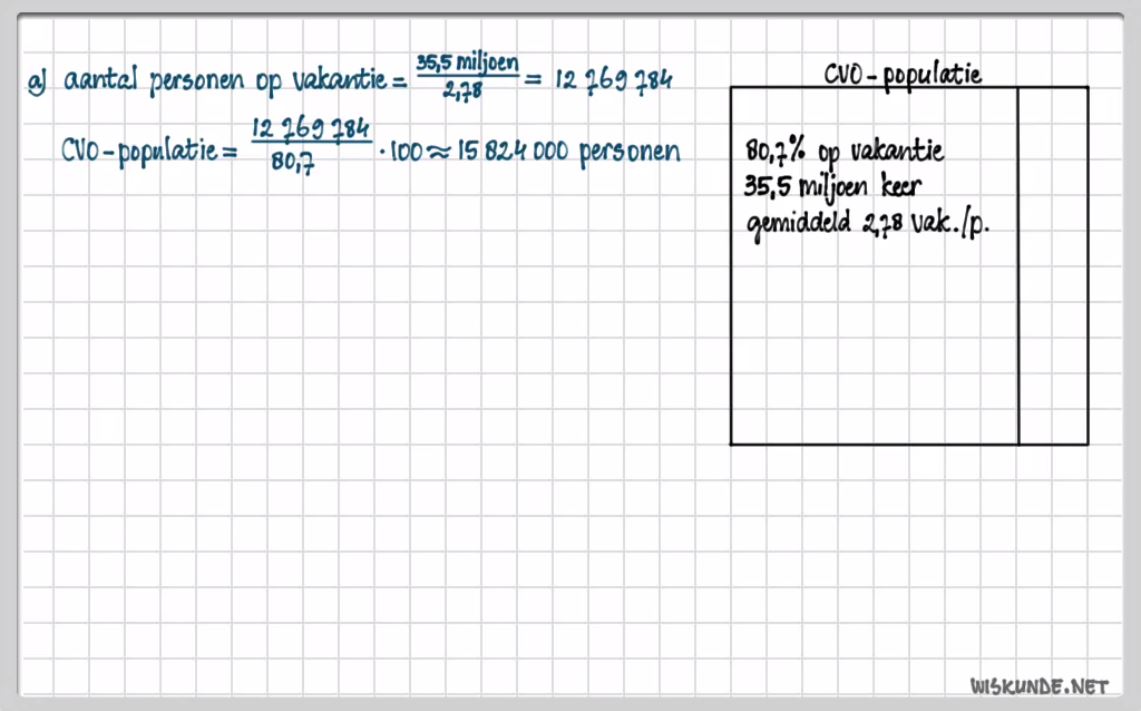 a) aantal personen op vakantie = 35,5 miljoen / 2,78 = 12 769 784
CVO-populatie = 12 769 784 / 80,7 · 100 ≈ 15 824 000 personen
CVO-populatie
80,7% op vakantie
35,5 miljoen keer
gemiddeld 2,78 vak./p.
WISKUNDE.NET